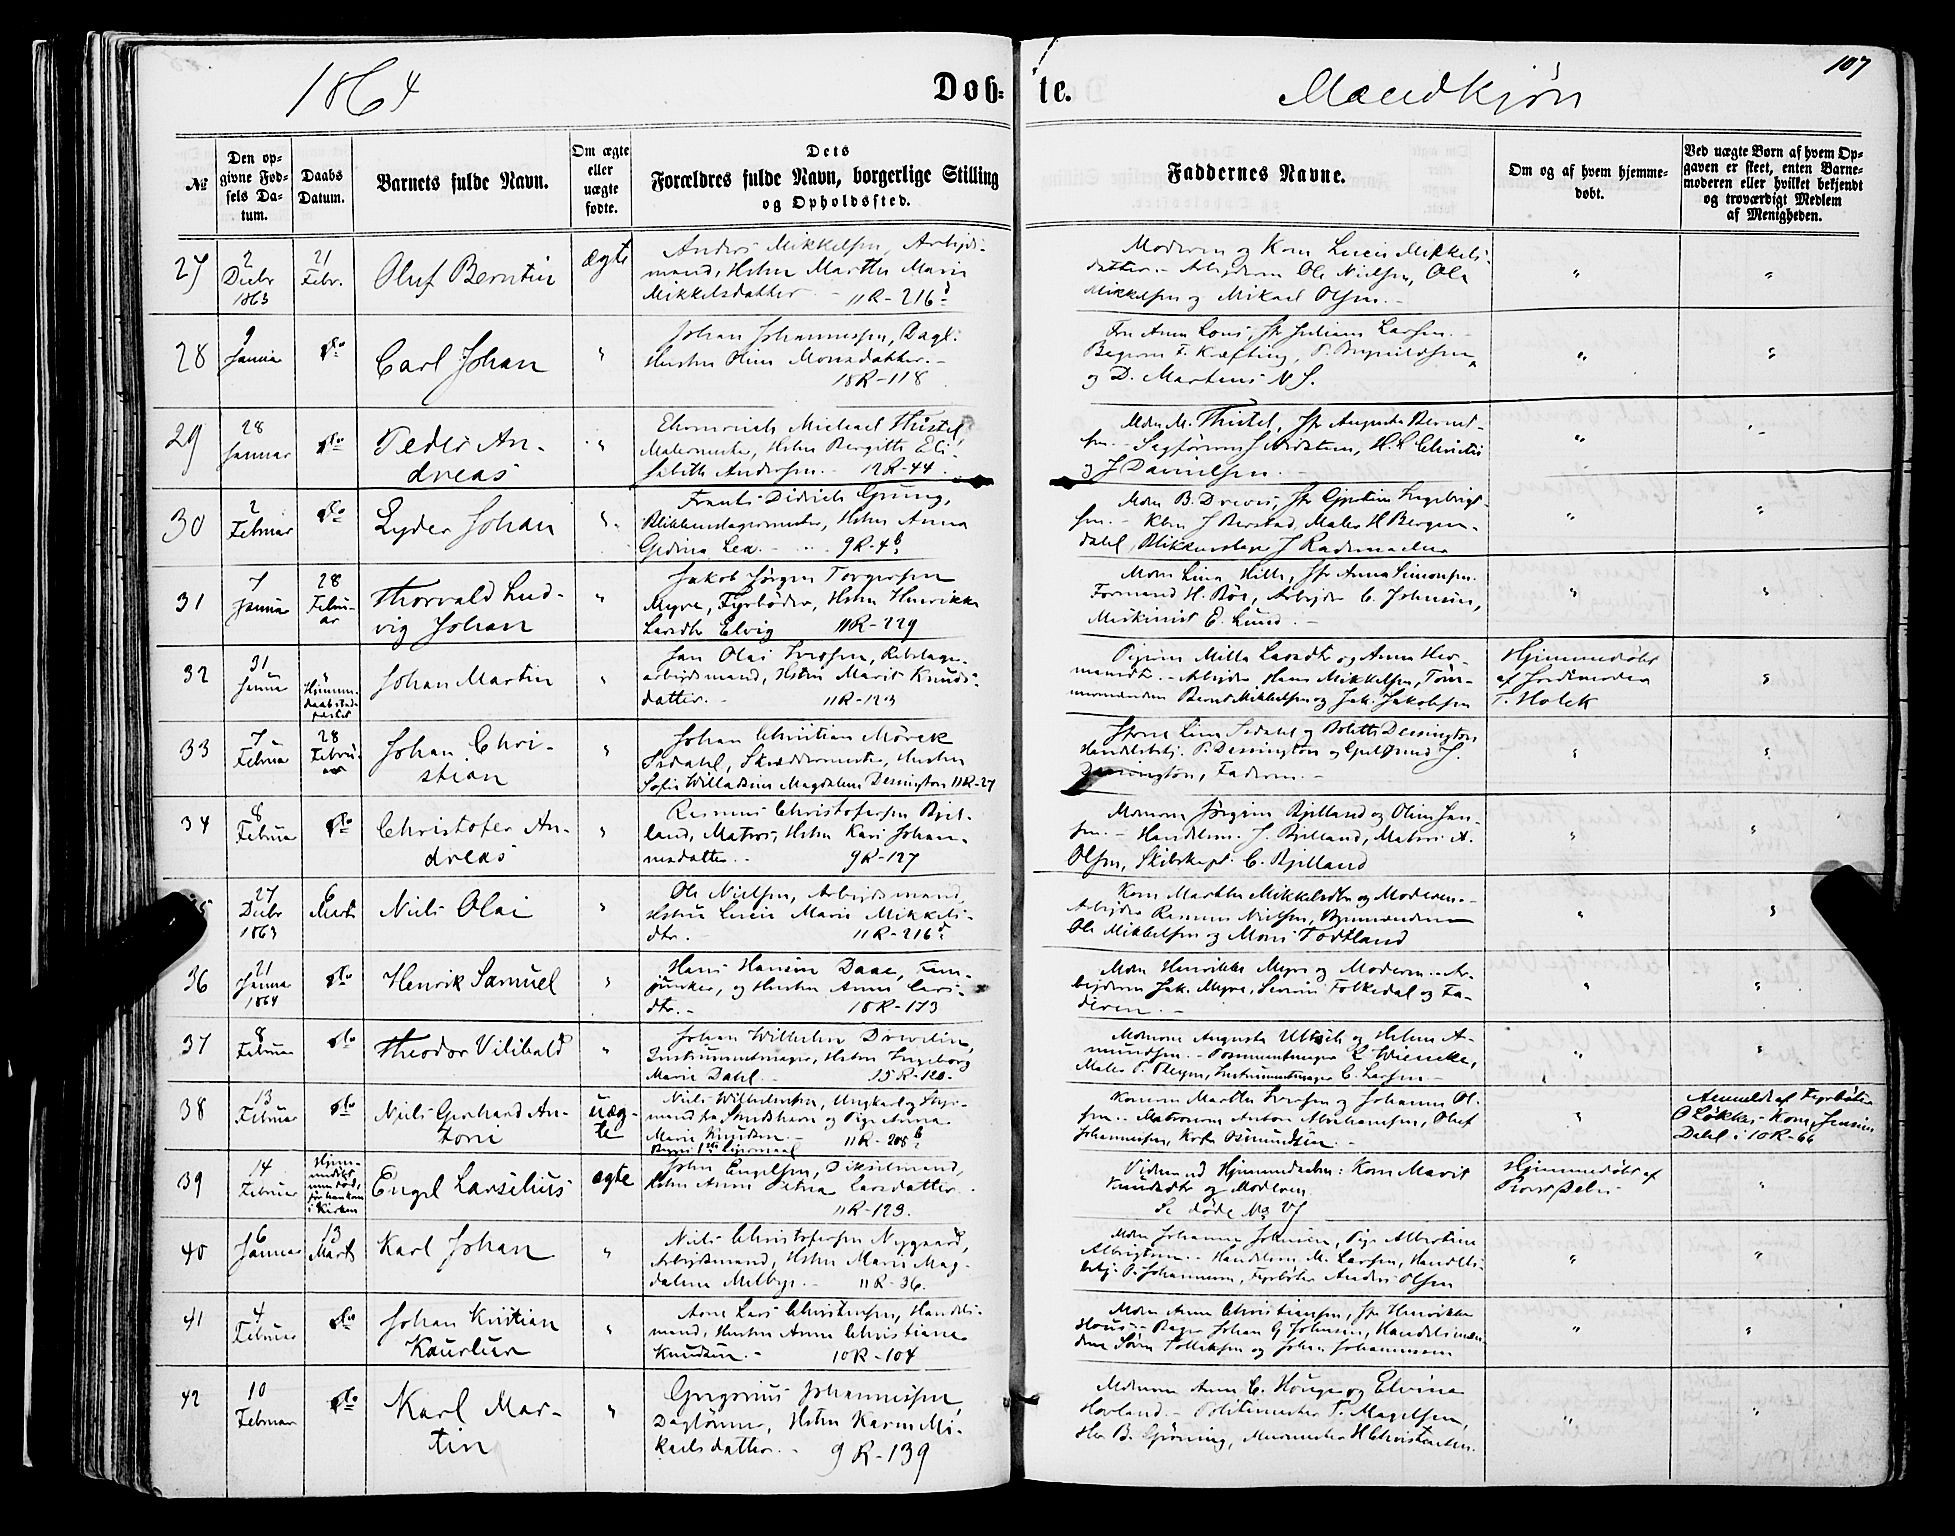 1864
Døb-
te.
Mandkjøn
107
№
Den op-
givne Fød-
sels Da-
tum.
Daabs
Datum.
Barnets fulde Navn.
Om ægte
eller
uægte
fødte.
Dets
Forældres fulde Navn, borgerlige Stilling
og Opholdssted.
Faddernes Navne.
Om og af hvem hjemme-
døbt.
Ved uægte Børn af hvem Op-
gaven er skeet, enten Barne-
moderen eller hvilket bekjendt
og troværdigt Medlem
af Menigheden.
27
2
Decbr
1863
21
Febr.
Oluf Berntin
ægte
Anders Mikkelsen, Arbejds-
mand, Hstru Martha Marie
Mikkelsdatter
11R-216
Moderen og Kone Mikkels-
datter. - Ole Nielsen, Ole
Mikkelsen og Mikael Olsen. -
28
9
Januar
do
Carl Johan
"
Johan Johannessen, Dagl:
Hustru Oline Monsdatter. -
18R-118
Fru Anna Jfr Juliane Larsen. -
og D. Martens
29
28
Januar
do
Peder An-
dreas
"
Michael Thistel,
Malermester, Hstru Bergitte Eli-
sabeth Andersen. - 12R-44.
Mdm M. Thistel, Jfr Augusta Bernt-
sen. - Christie
og J Danielsen. -
30
2
Februar
do
Lyder Johan
"
Frants Didrich Grung,
Blikkenslagermester, Hstru Anna
Gedina Lea. - 9R-4b
Mdm B. Drews, Jfr Ingebrigt-
sen. - J Berstad, Maler H Bergen-
dahl, Blikkenslager J Rademacher
31
7
Januar
28
Febru-
ar
Thorvald Lud-
vig Johan
"
Jakob Jørgen Torgersen
Myre, Fyrbøder, Hstru Henrikke
Larsdtr Elvig 11R-229
Mdm Lina Hille, Jfr Anna Simonsen.
Formand H. Bøe, Arbejder C. Johnsen,
Maskinist E. Lund. -
32
31
Januar
"
Hjemme-
daabstad-
fæstet
Johan Martin
"
Jan Olai Iversen, Rebslager-
arbejdsmand, Hstru Marit Knuds-
datter. - 11R-123
Pigerne Milla Larsdtr og Anna Her-
mansd. - Arbejder Hans Mikkelsen, Tøm-
mermændene Bernt Mikkelsen og Jak. Jakobsen
Hjemmedøbt
af Jordmoder
T. Holck
33
7
Februar
28
Febru-
ar
Johan Chri-
stian
"
Johan Christian Mørck
Sedahl, Skræddermester, Hustru
Sofie Willadsine Magdalene Dessington 11R-27
Lina Sedahl og Bolette Dessington
Handelsbetj. P. Dessington og
Dessington, Faderen. -
34
8
Februar
do
Christofer An-
dreas
"
Rasmus Christofersen Bjel-
land, Matros, Hstru Kari Johan-
nesdatter. - 9R-127
Konerne Jørgine Bjelland og Oline Han-
sen. - Handelsm. J. Bjelland, Matros A.
Olsen, Skibskapt. C. Bjelland
27
Decbr
1863
6
Marts
Niels Olai
"
Ole Nielsen, Arbejdsmand
Hstru Marie Mikkels-
dtr. - 11R-216
Kone Martha Mikkelsdtr og Moderen. -
Arbejder Rasmus Nielsen,
Ole Mikkelsen og Mons Todtland
36
21
Januar
1864
do
Henrik Samuel
"
Hans Hansen Daae, Fan-
junker, og Hustru Anna Lars-
dtr. - 18R-173
Mdm Henrikke Myre og Moderen. - Ar-
bejderne Jak. Myre, Severin Folkedal og Fa-
deren. -
37
8
Februar
do
Theodor Vilibald
"
Johan Wilhelm Drewelin,
Instrumentmager, Hstru Ingeborg
Marie Dahl. - 15R-120.
Mdmone Augusta og Helene A-
mundsen. - L Wieneke,
Maler Instrumentmager C. Larsen -
38
13
Februar
do
Niels Gerhard An-
toni
uæg-
te
Niels Wilhelmsen, Ungkarl og
mand fra og Pige Anna
Marie Knudsen. - 11R-208b
Begges 1ste Lejermaal
Konerne Martha Iversen og Johanne Ol-
sen. - Matroserne Anton Abrahamsen, Oluf
Johannessen,
Anmeldt af Fyrbøder
O Løkke - Kone Jensine
Dahl i 10R-66
39
14
Februar
Hjem-
medøbt
men død,
før han kom
i Kirken
Engel Larselius
ægte
John Engelsen,
Hstru Anna Petrea Larsdatter
11R-123.
Vidner ved Hjemmedaaben: Kone Marit
Knudsdtr og Moderen
Se døde No
Hjemmedøbt af
40
6
Januar
13
Marts
Karl Johan
"
Niels Christofersen Nygaard,
Arbejdsmand, Hstru Maren Mag-
dalene Melbye. - 11R-36.
Mdm Johanne Johnsen, Pige Albertine
Albrigtsen. - Handelsm. M. Larsen, Handels-
betj. Johannesen, Fyrbøder Anders Olsen
41
4
Februar
do
Johan Kristian
Kaurlun
"
Lars Christensen, Handels-
mand, Hustru Anne Christiane
Knudsen. - 10R-104
Mdm Anne Christiansen, Jfr Henrikke
Johan G Johnsen, Handelsmæn-
dene Søren Tollefsen og Johan Johannessen
42
10
Februar
do
Karl Mar-
tin
"
Gregorius Johannessen,
Daglønner, Hstru Karen Mi-
kaelsdatter. - 9R-139
Mdmone Anne C. Houge og Elvine
Hovland. - Politimester T. Magelsen,
Hr B. Grøning, Murmester H Christensen.